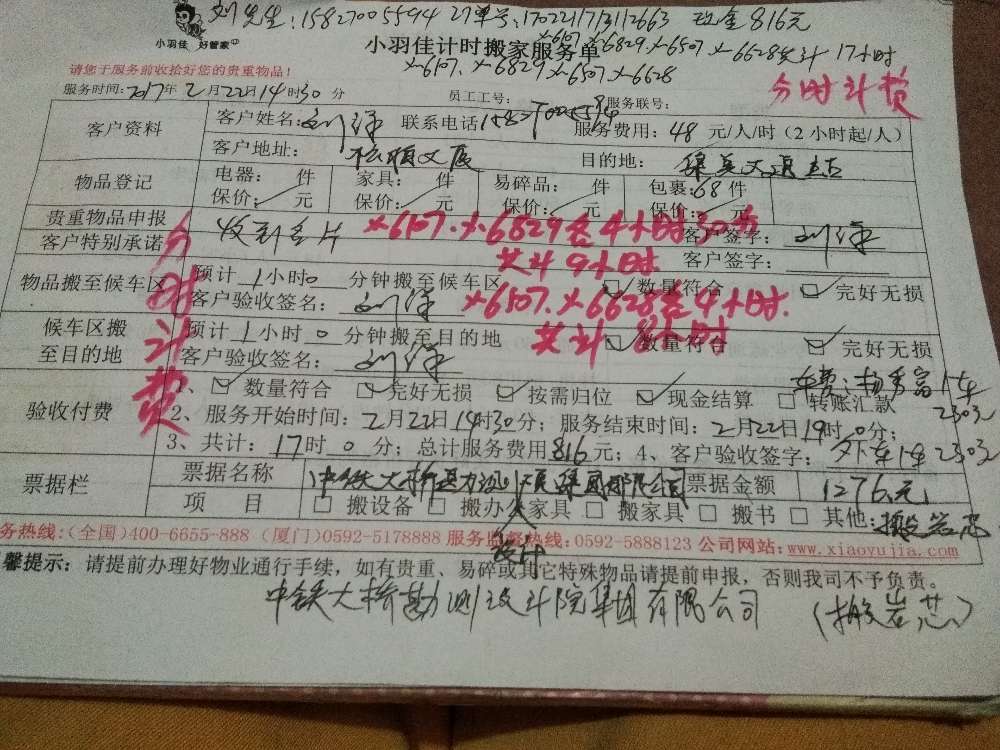 刘先生:15827005594 订单号:1702211713112663 现金816元
小羽佳 好管家
小羽佳计时搬家服务单
x-6107、x-6829、x-6507、x-6628共计17小时
x-6107、x-6829、x-6507、x-6628
请您于服务前收拾好您的贵重物品!
分时计费
服务时间:2017年2月22日14时30分 员工工号: 服务联号:
客户资料 客户姓名:刘洋 联系电话15827005594 服务费用:48元/人/时(2小时起/人)
客户地址: 大厦 目的地:
物品登记 电器: 件 家具: 件 易碎品: 件 包裹:68件
保价: 元 保价: 元 保价: 元 保价: 元
贵重物品申报 收到名片 客户签字:刘洋
x-6107、x-6829各4小时30分
客户特别承诺 共计9小时 客户签字:
分时计费
物品搬至候车区 预计1小时0分钟搬至候车区 数量符合 完好无损
客户验收签名:刘洋 x-6507、x-6628各4小时
候车区搬至目的地 预计1小时0分钟搬至目的地 共计8小时 数量符合 完好无损
客户验收签名:刘洋
车费:杨秀富1车230元
验收付费 1、数量符合 完好无损 按需归位 现金结算 转账汇款
2、服务开始时间:2月22日14时30分;服务结束时间:2月22日19时0分;
3、共计:17时0分;总计服务费用816元;4、客户验收签字: 外车1车230元
票据栏 票据名称 中铁大桥勘测设计院集团有限公司 票据金额 1276元
项目 搬设备 搬办公家具 搬家具 搬书 其他:搬岩芯
务热线:(全国)400-6655-888 (厦门)0592-5178888 服务监督热线:0592-5888123 公司网站:www.xiaoyujia.com
馨提示:请提前办理好物业通行手续,如有贵重、易碎或其它特殊物品请提前申报,否则我司不予负责。
中铁大桥勘测设计院集团有限公司 (搬岩芯)